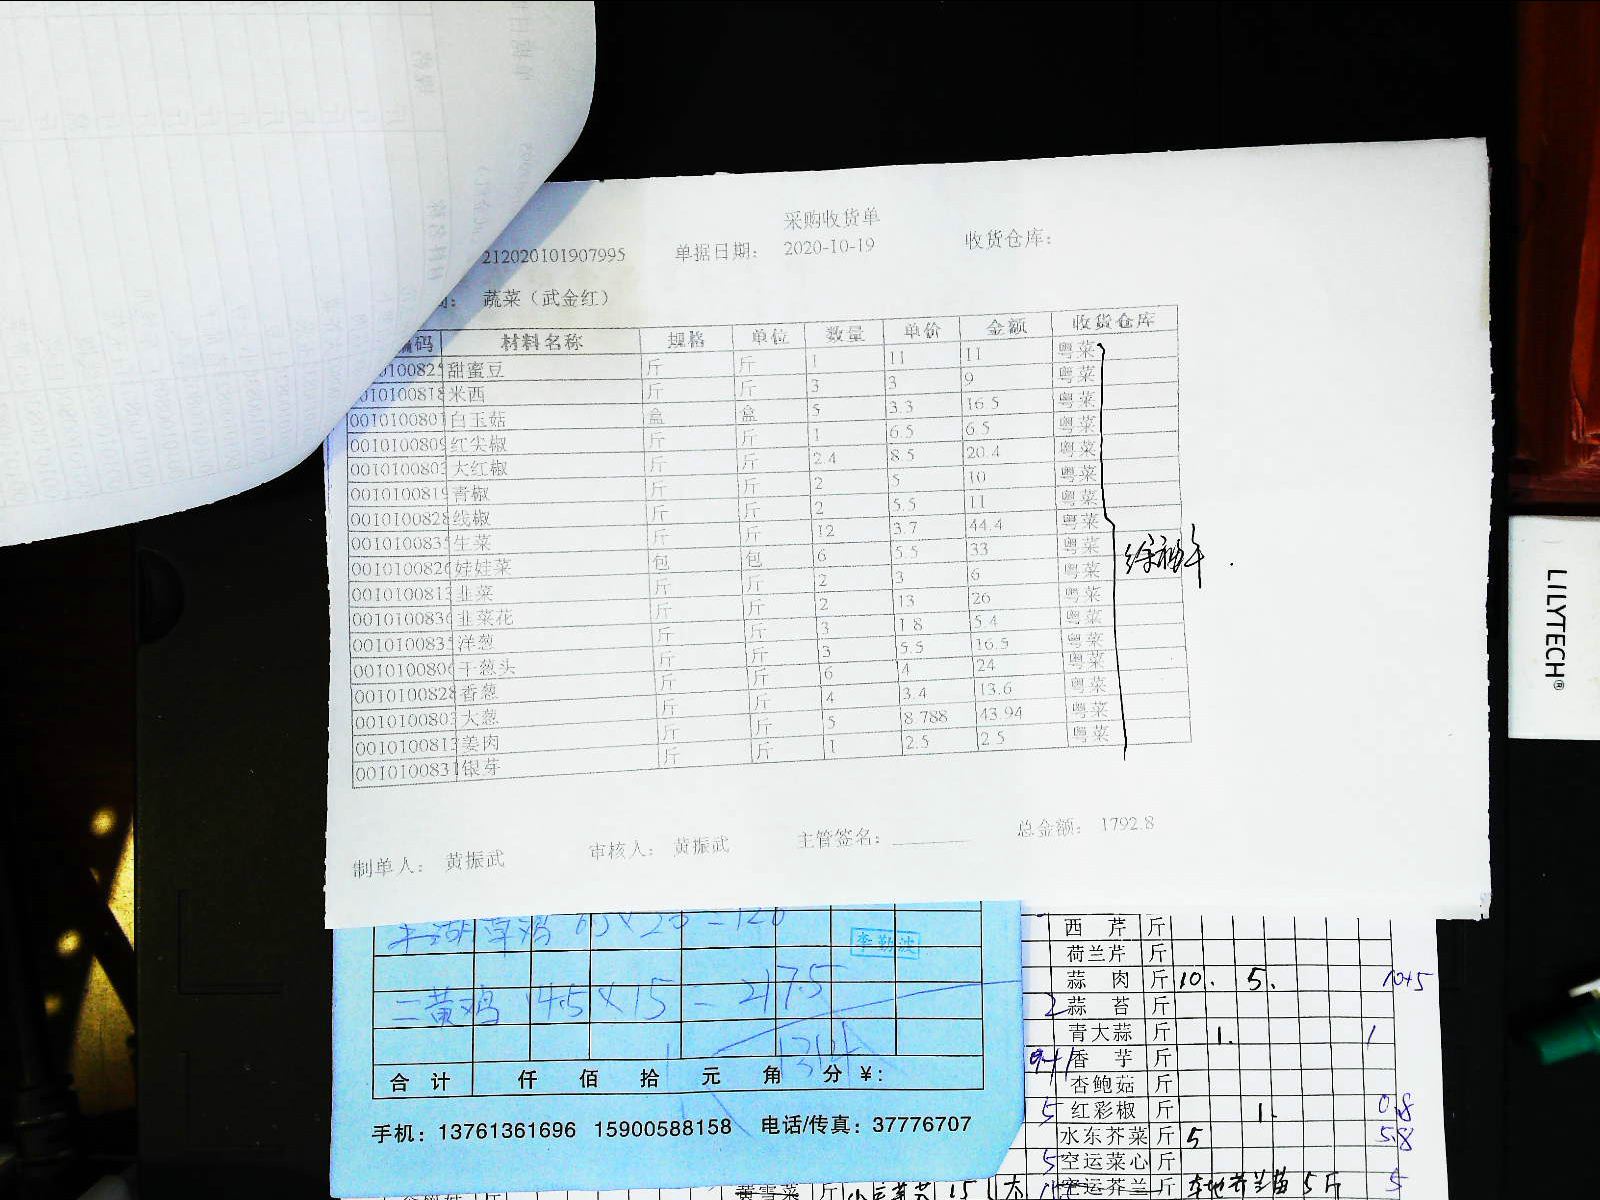 采购收货单
212020101907995 单据日期： 2020-10-19 收货仓库：
蔬菜（武金红）
编码 材料名称 规格 单位 数量 单价 金额 收货仓库
甜蜜豆 斤 斤 1 11 11 粤菜
米西 斤 斤 3 3 9 粤菜
0010100801 白玉菇 盒 盒 5 3.3 16.5 粤菜
0010100809 红尖椒 斤 斤 1 6.5 6.5 粤菜
0010100803 大红椒 斤 斤 2.4 8.5 20.4 粤菜
0010100819 青椒 斤 斤 2 5 10 粤菜
0010100828 线椒 斤 斤 2 5.5 11 粤菜
0010100835 生菜 斤 斤 12 3.7 44.4 粤菜
0010100826 娃娃菜 包 包 6 5.5 33 粤菜
0010100813 韭菜 斤 斤 2 3 6 粤菜
0010100830 韭菜花 斤 斤 2 13 26 粤菜
0010100835 洋葱 斤 斤 3 1.8 5.4 粤菜
0010100806 干葱头 斤 斤 3 5.5 16.5 粤菜
0010100828 香葱 斤 斤 6 4 24 粤菜
0010100803 大葱 斤 斤 4 3.4 13.6 粤菜
0010100813 姜肉 斤 斤 5 8.788 43.94 粤菜
0010100831 银芽 斤 斤 1 2.5 2.5 粤菜
制单人： 黄振武 审核人： 黄振武 主管签名： 总金额： 1792.8
李勤波
三黄鸡 14.5×15=217.5
合计 仟 佰 拾 元 角 分 ¥：
手机：13761361696 15900588158 电话/传真：37776707
西芹 斤
荷兰芹 斤
蒜肉 斤 10. 5. 10+5
2 蒜苔 斤
青大蒜 斤 1. 1
香芋 斤
杏鲍菇 斤
5 红彩椒 斤 1. 0.8
水东芥菜 斤 5 5.8
5 空运菜心 斤
空运芥兰 斤 本地芥兰苗 5斤 5
黄雪菜 斤 15
LILYTECH®